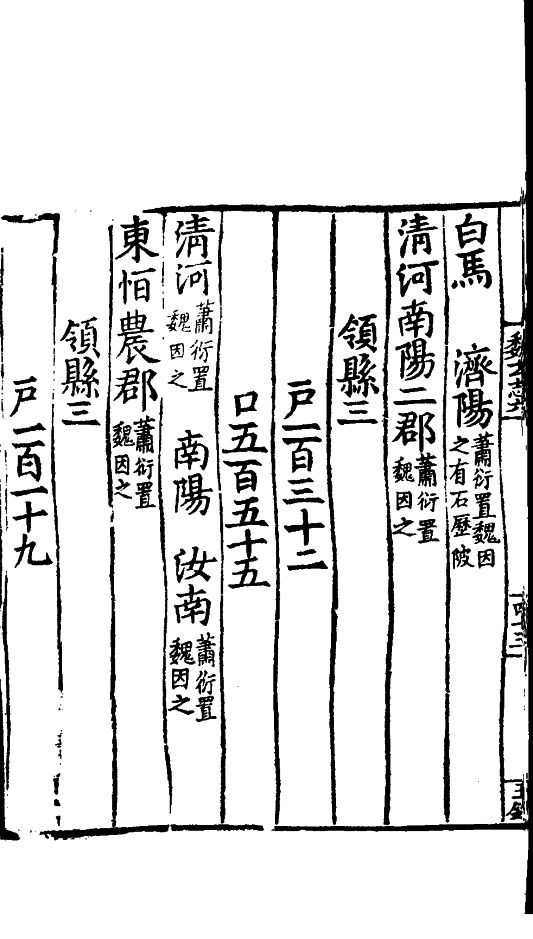 白馬　濟陽蕭衍置魏因之有石歷陂
清河南陽二郡蕭衍置魏因之
領縣三
戶二百三十二
口五百五十五
清河蕭衍置魏因之　南陽　汝南蕭衍置魏因之
東恒農郡蕭衍置魏因之
領縣三
戶二百一十九